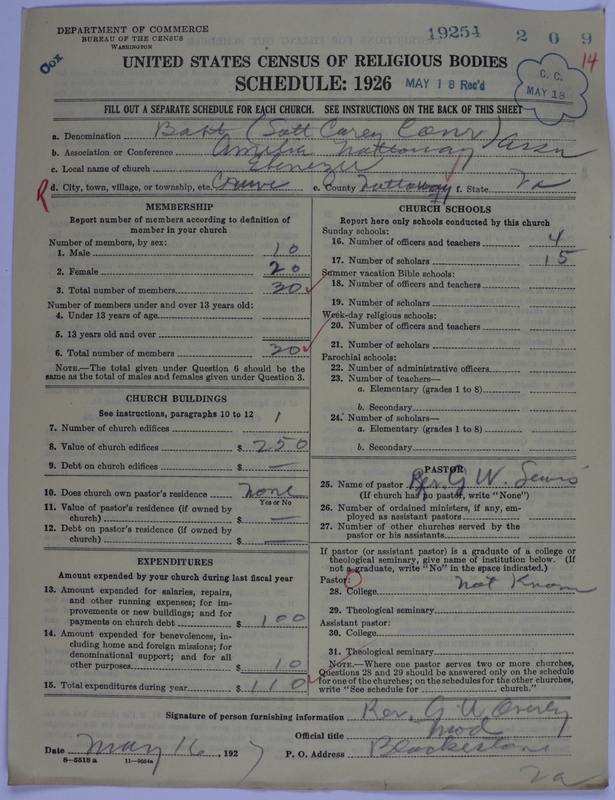 DEPARTMENT OF COMMERCE
BUREAU OF THE CENSUS
WASHINGTON
19254
209
14
Cox
UNITED STATES CENSUS OF RELIGIOUS BODIES
SCHEDULE: 1926
MAY 18 Rec'd
C. C.
MAY 18
FILL OUT A SEPARATE SCHEDULE FOR EACH CHURCH. SEE INSTRUCTIONS ON THE BACK OF THIS SHEET
a. Denomination Bapt (Lott Carey Conv)
b. Association or Conference Amelia Nottoway Assn
c. Local name of church Ebenezer
R
d. City, town, village, or township, etc. Crewe e. County Nottoway f. State Va
MEMBERSHIP
Report number of members according to definition of
member in your church
Number of members, by sex:
1. Male 10
2. Female 20
3. Total number of members 30
Number of members under and over 13 years old:
4. Under 13 years of age
5. 13 years old and over
6. Total number of members 30
NOTE.—The total given under Question 6 should be the
same as the total of males and females given under Question 3.
CHURCH BUILDINGS
See instructions, paragraphs 10 to 12
7. Number of church edifices 1
8. Value of church edifices $ 250
9. Debt on church edifices $ —
10. Does church own pastor's residence none
Yes or No
11. Value of pastor's residence (if owned by
church) $ —
12. Debt on pastor's residence (if owned by
church) $ —
EXPENDITURES
Amount expended by your church during last fiscal year
13. Amount expended for salaries, repairs,
and other running expenses; for im-
provements or new buildings; and for
payments on church debt $ 100
14. Amount expended for benevolences, in-
cluding home and foreign missions; for
denominational support; and for all
other purposes $ 10
15. Total expenditures during year $ 110
CHURCH SCHOOLS
Report here only schools conducted by this church
Sunday schools:
16. Number of officers and teachers 4
17. Number of scholars 15
Summer vacation Bible schools:
18. Number of officers and teachers
19. Number of scholars
Week-day religious schools:
20. Number of officers and teachers
21. Number of scholars
Parochial schools:
22. Number of administrative officers
23. Number of teachers—
a. Elementary (grades 1 to 8)
b. Secondary
24. Number of scholars—
a. Elementary (grades 1 to 8)
b. Secondary
PASTOR
25. Name of pastor Rev. G W. Lewis
(If church has no pastor, write "None")
26. Number of ordained ministers, if any, em-
ployed as assistant pastors
27. Number of other churches served by the
pastor or his assistants
If pastor (or assistant pastor) is a graduate of a college or
theological seminary, give name of institution below. (If
not a graduate, write "No" in the space indicated.)
Pastor:
28. College not Know
29. Theological seminary
Assistant pastor:
30. College
31. Theological seminary
NOTE.—Where one pastor serves two or more churches,
Questions 28 and 29 should be answered only on the schedule
for one of the churches; on the schedules for the other churches,
write "See schedule for church."
Signature of person furnishing information Rev. G W Overly
Official title Mod
Date May 16, 1927 P. O. Address Blackstone
Va
8—5518 a 11—9054a